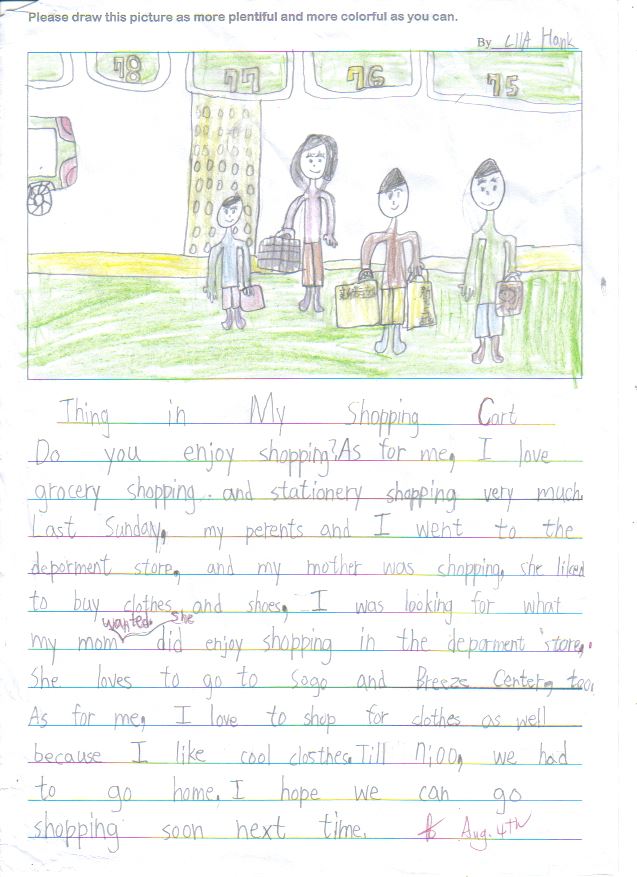 Please draw this picture as more plentiful and more colorful as you can.
By
78 77 76 75
Thing in My Shopping Cart
Do you enjoy shopping? As for me, I love
grocery shopping. and stationery shopping very much.
Last Sunday, my perents and I went to the
deporment store, and my mother was shopping, she liked
to buy clothes and shoes, I was looking for what
wanted. She
my mom did enjoy shopping in the deporment store,.
She loves to go to Sogo and Breeze Center, too.
As for me, I love to shop for clothes as well
because I like cool closthes. Till 7:00, we had
to go home. I hope we can go
shopping soon next time. Aug. 4th